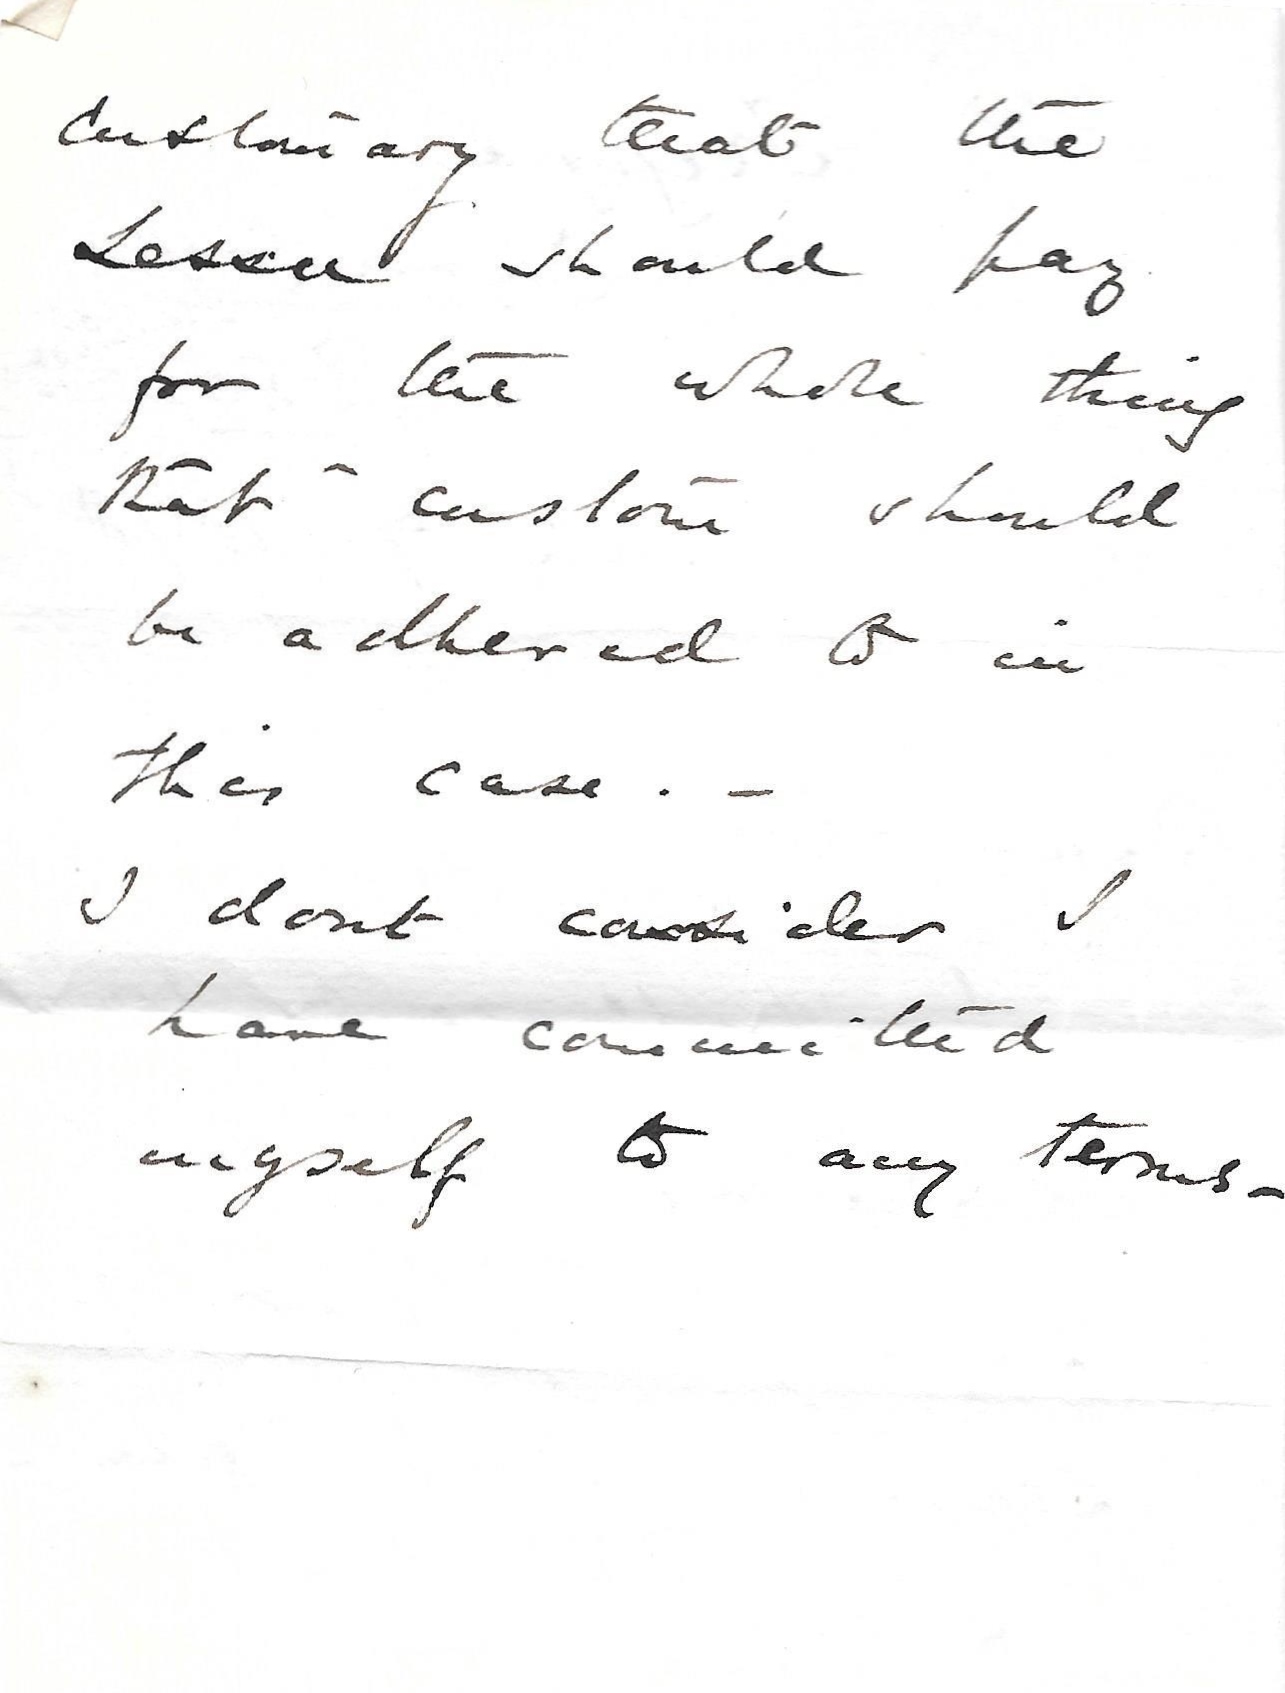 customary that the
Lessee should pay
for the whole thing
that custom should
be adhered to in
this case. -
I dont consider I
have committed
myself to any terms -